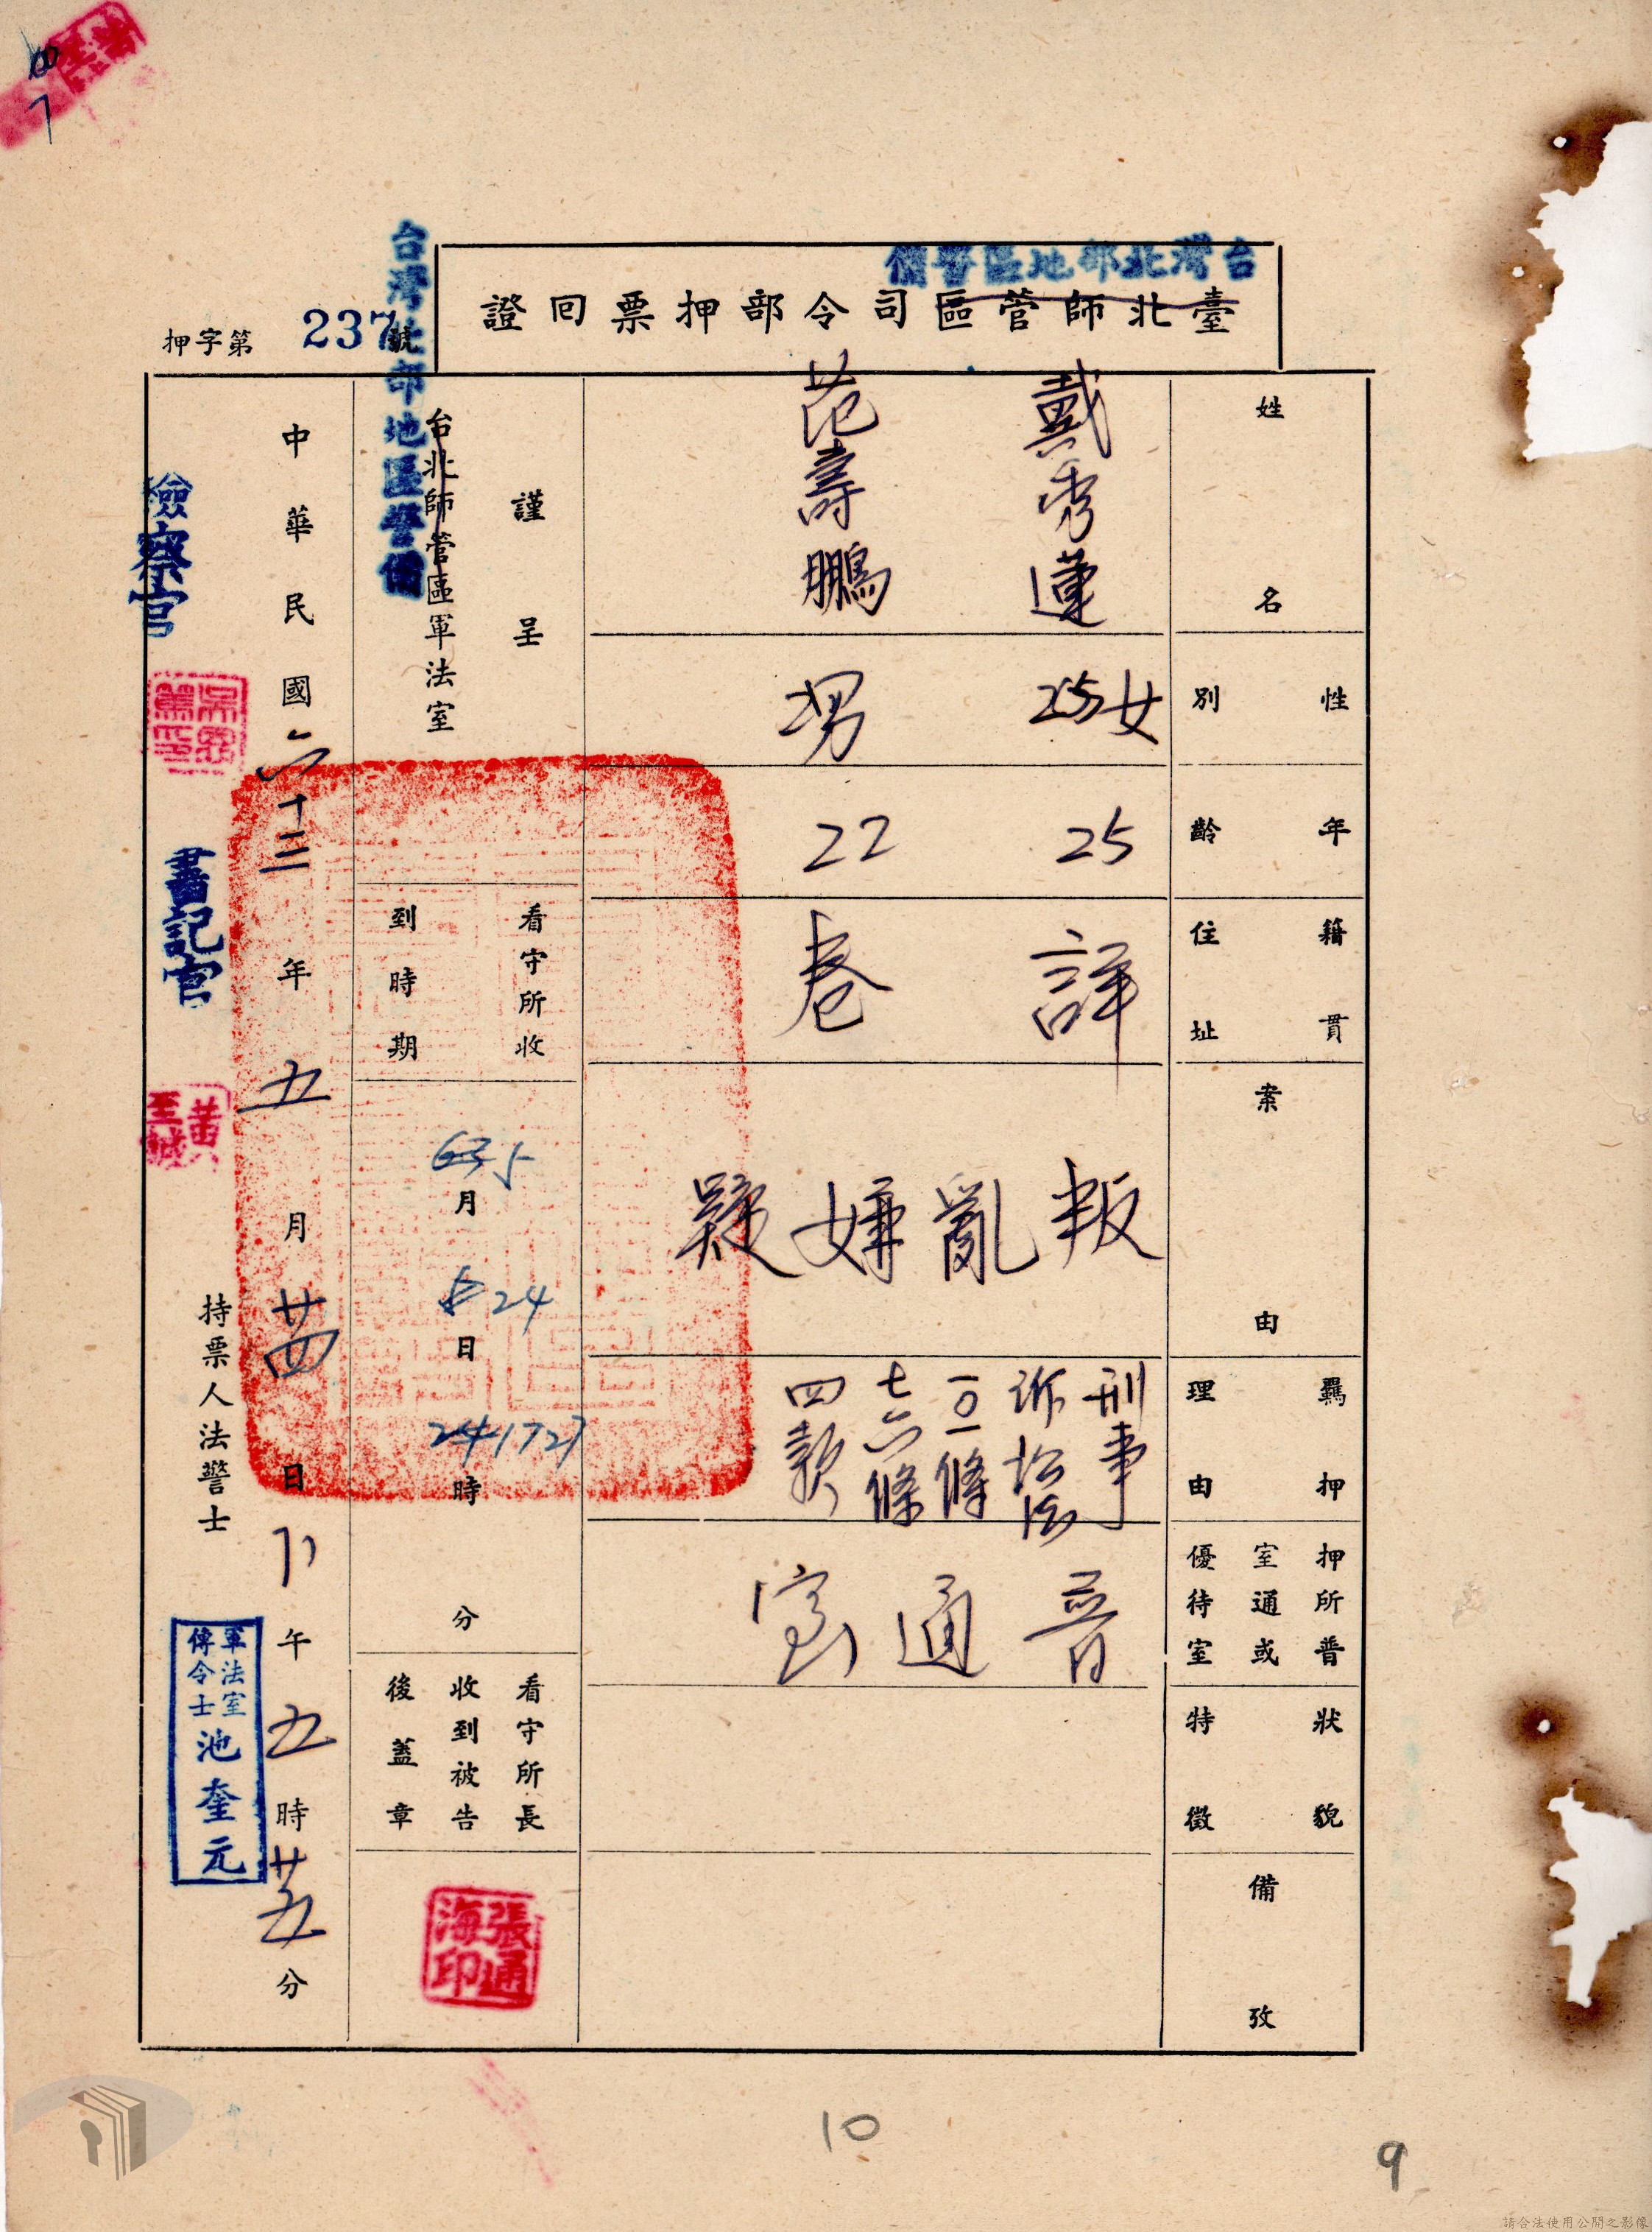 台灣北部地區警備
臺北師管區司令部押票回證
押字第237號
姓名
戴秀蓮
范壽鵬
性別
女
25
男
年齡
25
22
籍貫
住址
詳
卷
案由
叛亂嫌疑
羈押
理由
刑事
訴訟法
一〇一條
七六條
四款
押所普
室通或
優待室
普通室
狀貌
特徵
備攷
謹呈
台北師管區軍法室
台灣北部地區警備
看守所收
到時期
63 5
月
24
日
241727
時
分
看守所長
收到被告
後蓋章
張通
海印
中華民國六十三年五月廿四日下午五時廿五分
檢察官
書記官
黃
持票人法警士
軍法室
傳令士
池奎元
10
9
請合法使用公開之影像